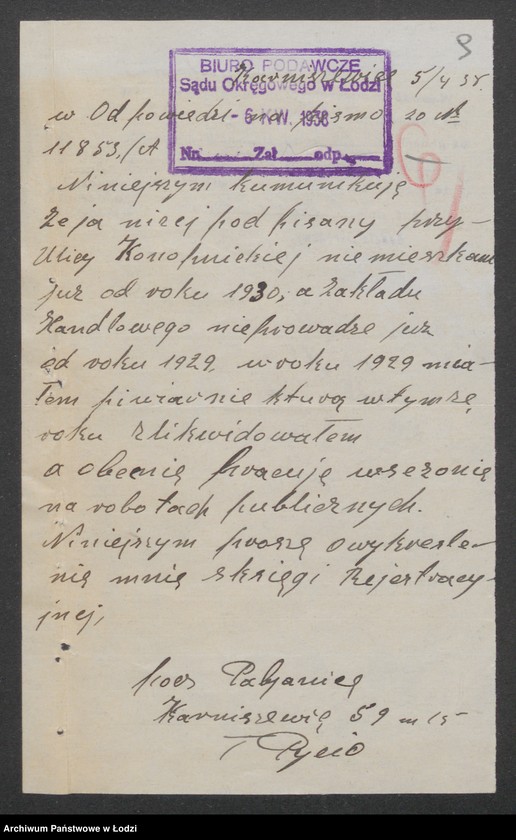 3
BIURO PODAWCZE
Sądu Okręgowego w Łodzi
- 6 KW. 1938
Nr. Zał. odp.
Karniszewice 5/4 38.
w Odpowiedzi na pismo zo №
11853./A
Niniejszym kumunikują
że ja niżej podpisany przy-
Ulicy Konopnickiej niemieszkam
już od roku 1930, a Zakładu
Handlowego nieprowadzę już
od roku 1929. w roku 1929 mia-
łem piwiarnie kturą wtymże
roku zlikwidowałem
a obecnię pracuję wsezonię
na robotach publicznych.
Niniejszym proszę owykreśle-
nię mnię sksięgi Rejestracy-
jnej,
pocz Pabjanicę
Karniszewię 59 m 15
T Pycio
Archiwum Państwowe w Łodzi